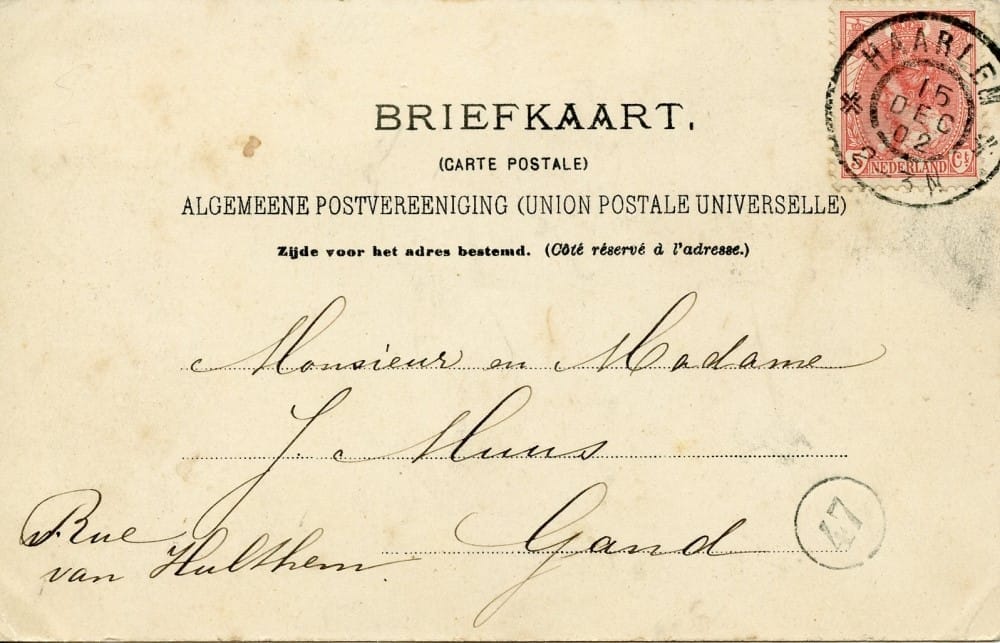 HAARLEM
15
DEC
02
2-3N
5 NEDERLAND Ct
BRIEFKAART.
(CARTE POSTALE)
ALGEMEENE POSTVEREENIGING (UNION POSTALE UNIVERSELLE)
Zijde voor het adres bestemd. (Côté réservé à l'adresse.)
Monsieur en Madame
J. Muus
Gand
Rue
van Hulthem
47